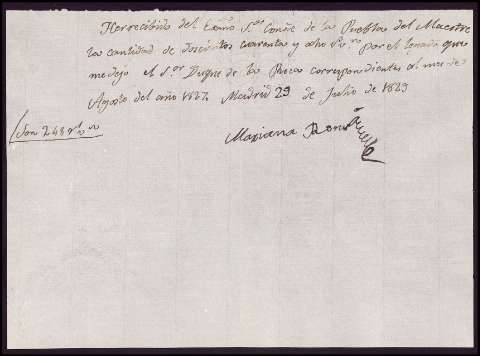 He recibido del Exmo Sor Conde de la Puebla del Maestre
la cantidad de doscientos cuarenta y ocho Rs vn por el legado que
me dejo el Sor Duque de la Roca correspondientes al mes de
Agosto del año 1827. Madrid 29 de Julio de 1829
Son 248 rs vn
Mariana